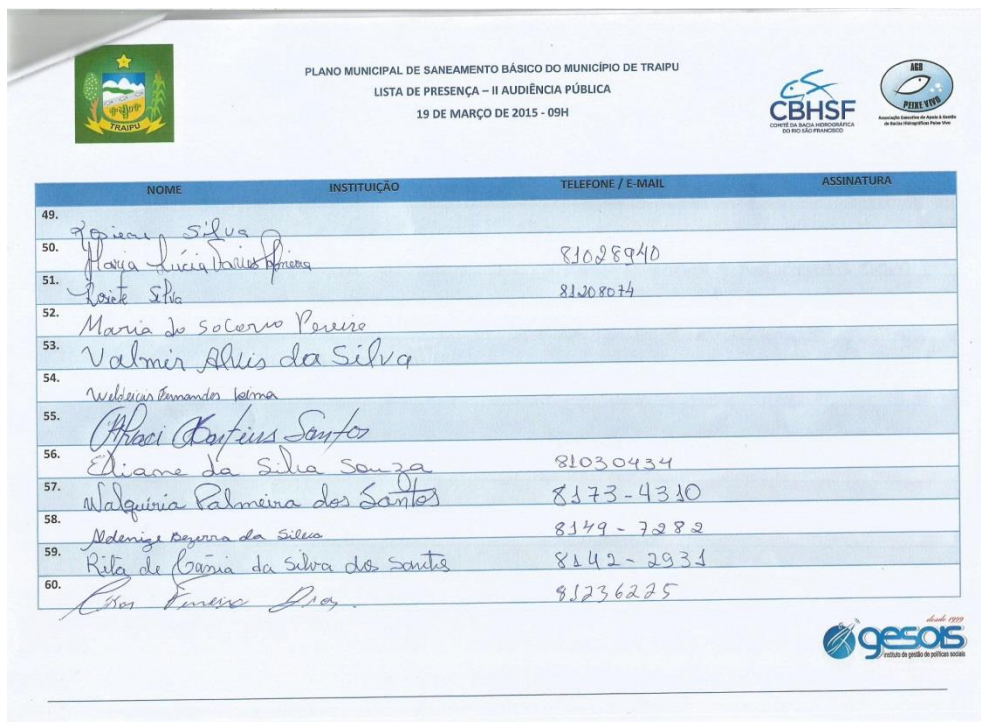 TRAIPU
PLANO MUNICIPAL DE SANEAMENTO BÁSICO DO MUNICÍPIO DE TRAIPU
LISTA DE PRESENÇA – II AUDIÊNCIA PÚBLICA
19 DE MARÇO DE 2015 - 09H
CBHSF
COMITÊ DA BACIA HIDROGRÁFICA
DO RIO SÃO FRANCISCO
AGB
PEIXE VIVO
Associação Executiva de Apoio à Gestão
de Bacias Hidrográficas Peixe Vivo
NOME INSTITUIÇÃO TELEFONE / E-MAIL ASSINATURA
49. Silva
50. Maria Lúcia 81028940
51. Rosiete Silva 81208074
52. Maria do Socorro Pereira
53. Valmir Alvis da Silva
54. Fernandes
55. Santos
56. Eliane da Silva Souza 81030434
57. Walquiria Palmeira dos Santos 8173-4310
58. Aldenize Bezerra da Silva 8149-7282
59. Rita de Cássia da Silva dos Santos 8142-2931
60. 81236225
desde 1999
gesois
instituto de gestão de políticas sociais